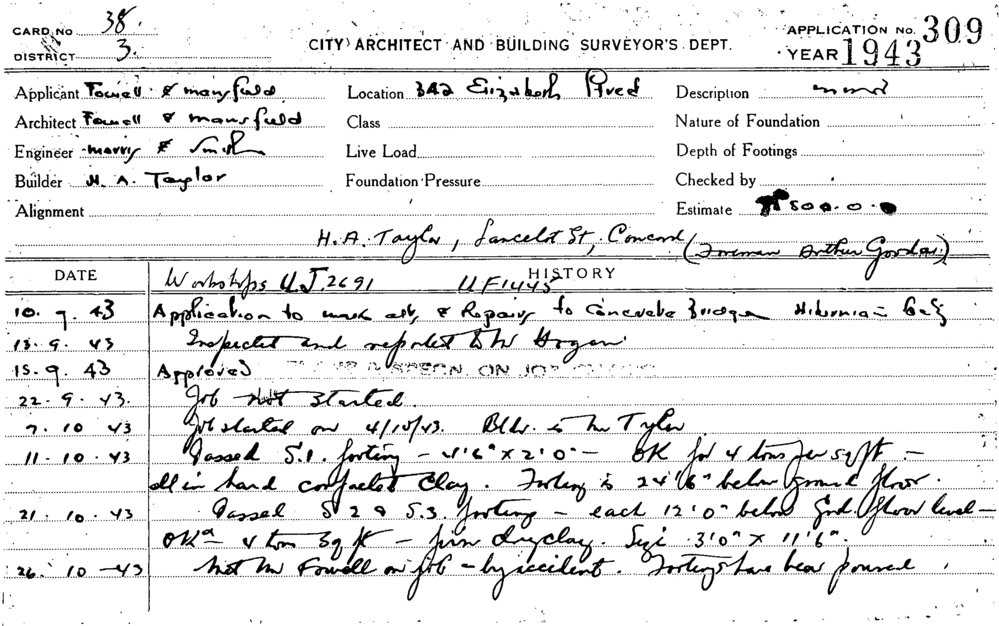 CARD No 38.
DISTRICT 3.
CITY ARCHITECT AND BUILDING SURVEYOR'S DEPT.
APPLICATION No. 309
YEAR 1943
Applicant Fowell & Mansfield Location 342 Elizabeth Street Description
Architect Fowell & Mansfield Class Nature of Foundation
Engineer Morris & Smith Live Load Depth of Footings
Builder H. A. Taylor Foundation Pressure Checked by
Alignment Estimate 500.0.0
H. A. Taylor, Lancelot St, Concord (Foreman Arthur Gordon)
DATE HISTORY
Workshops UJ.2691 UF1445
10. 9. 43 Application to make & Repairs to Concrete Hibernia
13. 9. 43 Inspected and reported to Mr Hogan
15. 9. 43 Approved ON JOB
22. 9. 43. Job not started.
7. 10 43 Job started on 4/10/43. Bldr. is Mr Tylor
11. 10. 43 Passed S.1. footing – 4'6" x 2'0" – OK for 4 tons per sq ft –
all in hard compacted clay. Footing is 24'6" below ground floor.
21. 10. 43 Passed S2 & S.3. footing – each 12'0" below Grd. floor level –
OK 4 ton sq ft – firm dry clay. Size 3'0" x 11'6".
26. 10 – 43 Met Mr Fowell on job – by accident. Footings have been poured.